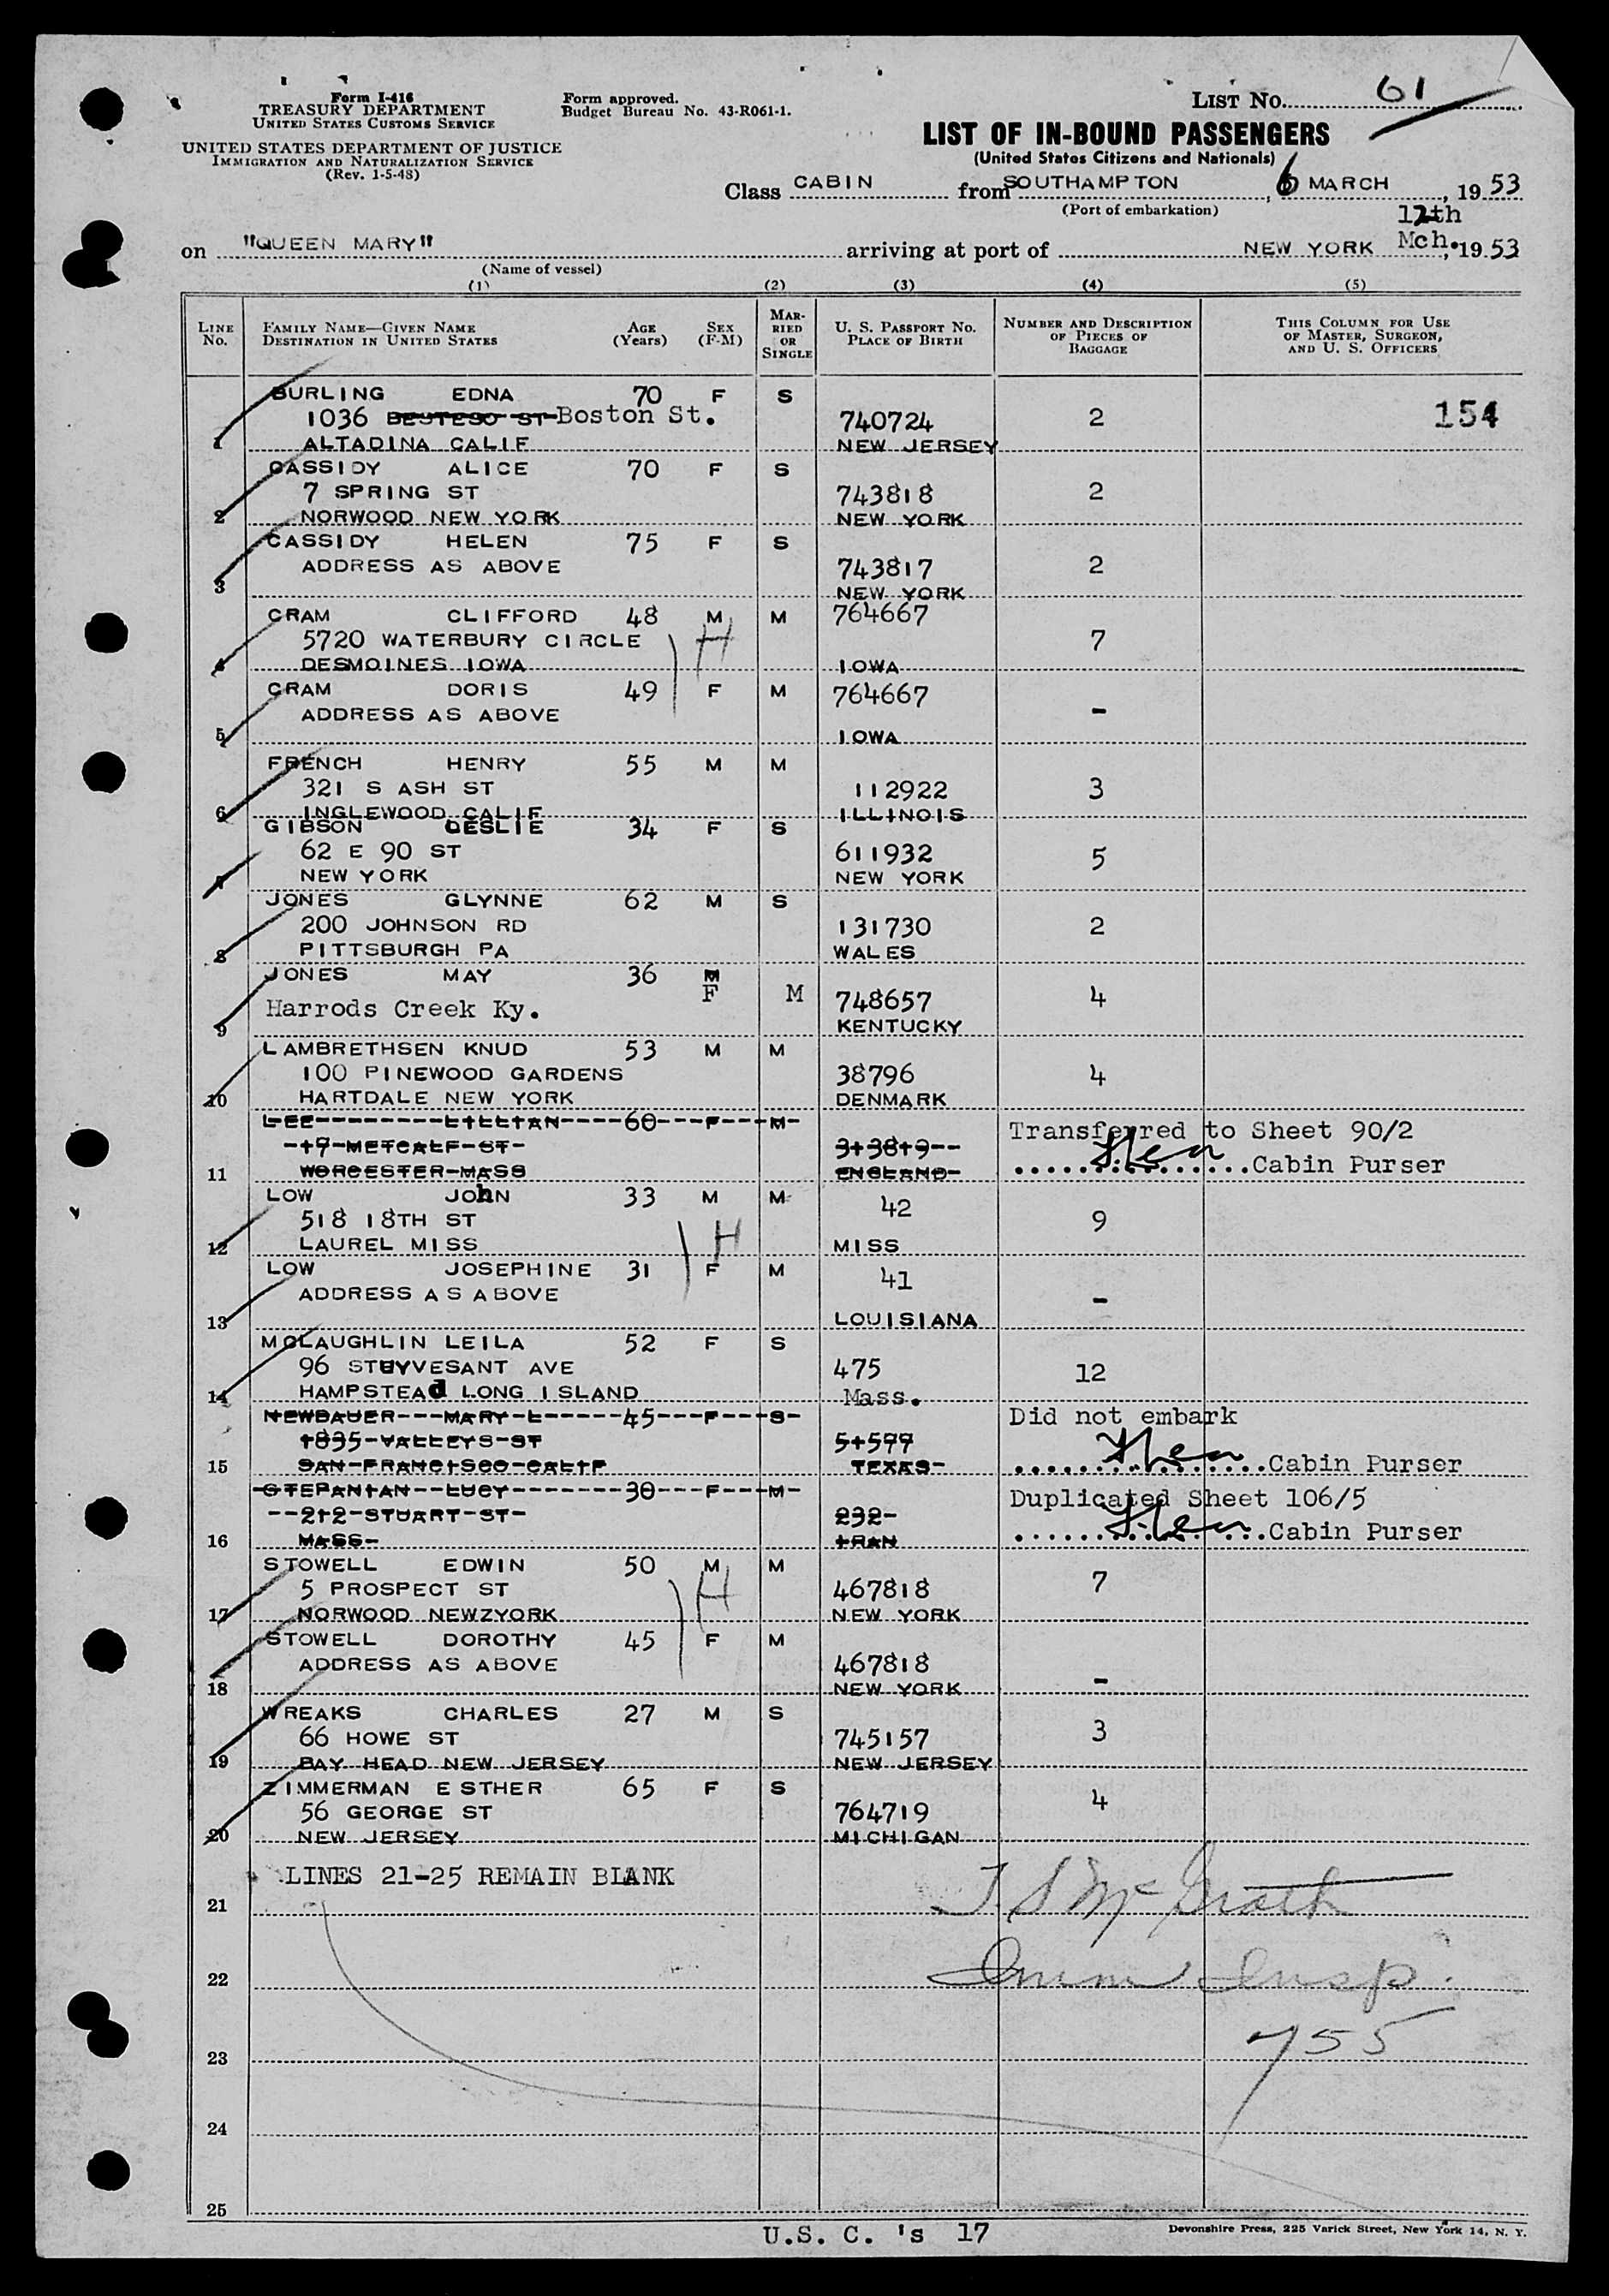 Form I-416
TREASURY DEPARTMENT
UNITED STATES CUSTOMS SERVICE
UNITED STATES DEPARTMENT OF JUSTICE
IMMIGRATION AND NATURALIZATION SERVICE
(Rev. 1-5-48)
Form approved.
Budget Bureau No. 43-R061-1.
LIST NO. 61
LIST OF IN-BOUND PASSENGERS
(United States Citizens and Nationals)
Class CABIN from SOUTHAMPTON, 6 MARCH, 1953
(Port of embarkation)
12th
on "QUEEN MARY" arriving at port of NEW YORK Mch., 1953
(Name of vessel)
(1) (2) (3) (4) (5)
LINE No. FAMILY NAME—GIVEN NAME DESTINATION IN UNITED STATES AGE (Years) SEX (F-M) MARRIED OR SINGLE U. S. PASSPORT NO. PLACE OF BIRTH NUMBER AND DESCRIPTION OF PIECES OF BAGGAGE THIS COLUMN FOR USE OF MASTER, SURGEON, AND U. S. OFFICERS
BURLING EDNA 70 F S
1036 BESTESO ST Boston St. 740724 2 154
1 ALTADINA CALIF NEW JERSEY
CASSIDY ALICE 70 F S
7 SPRING ST 743818 2
2 NORWOOD NEW YORK NEW YORK
CASSIDY HELEN 75 F S
ADDRESS AS ABOVE 743817 2
3 NEW YORK
CRAM CLIFFORD 48 M M 764667
5720 WATERBURY CIRCLE H 7
4 DESMOINES IOWA IOWA
CRAM DORIS 49 F M 764667
ADDRESS AS ABOVE -
5 IOWA
FRENCH HENRY 55 M M
321 S ASH ST 112922 3
6 INGLEWOOD CALIF ILLINOIS
GIBSON LESLIE 34 F S
62 E 90 ST 611932 5
7 NEW YORK NEW YORK
JONES GLYNNE 62 M S
200 JOHNSON RD 131730 2
8 PITTSBURGH PA WALES
JONES MAY 36 M
Harrods Creek Ky. F M 748657 4
9 KENTUCKY
LAMBRETHSEN KNUD 53 M M
100 PINEWOOD GARDENS 38796 4
10 HARTDALE NEW YORK DENMARK
LEE LILLIAN 60 F M Transferred to Sheet 90/2
17 METCALF ST 313819
11 WORCESTER MASS ENGLAND Cabin Purser
LOW JOhN 33 M M 42
518 18TH ST H 9
12 LAUREL MISS MISS
LOW JOSEPHINE 31 F M 41
ADDRESS AS ABOVE -
13 LOUISIANA
MCLAUGHLIN LEILA 52 F S
96 STUYVESANT AVE 475 12
14 HAMPSTEAd LONG ISLAND Mass.
NEWBAUER MARY L 45 F S Did not embark
1835 VALLEYS ST 51577
15 SAN FRANCISCO CALIF TEXAS Cabin Purser
STEPANIAN LUCY 30 F M Duplicated Sheet 106/5
212 STUART ST 232
16 MASS IRAN Cabin Purser
STOWELL EDWIN 50 M M
5 PROSPECT ST H 467818 7
17 NORWOOD NEWZYORK NEW YORK
STOWELL DOROTHY 45 F M
ADDRESS AS ABOVE 467818 -
18 NEW YORK
WREAKS CHARLES 27 M S
66 HOWE ST 745157 3
19 BAY HEAD NEW JERSEY NEW JERSEY
ZIMMERMAN ESTHER 65 F S
56 GEORGE ST 764719 4
20 NEW JERSEY MICHIGAN
LINES 21-25 REMAIN BLANK
21 T. S McGrath
22 Imm Insp.
23 755
24
25
U.S.C.'s 17
Devonshire Press, 225 Varick Street, New York 14, N. Y.